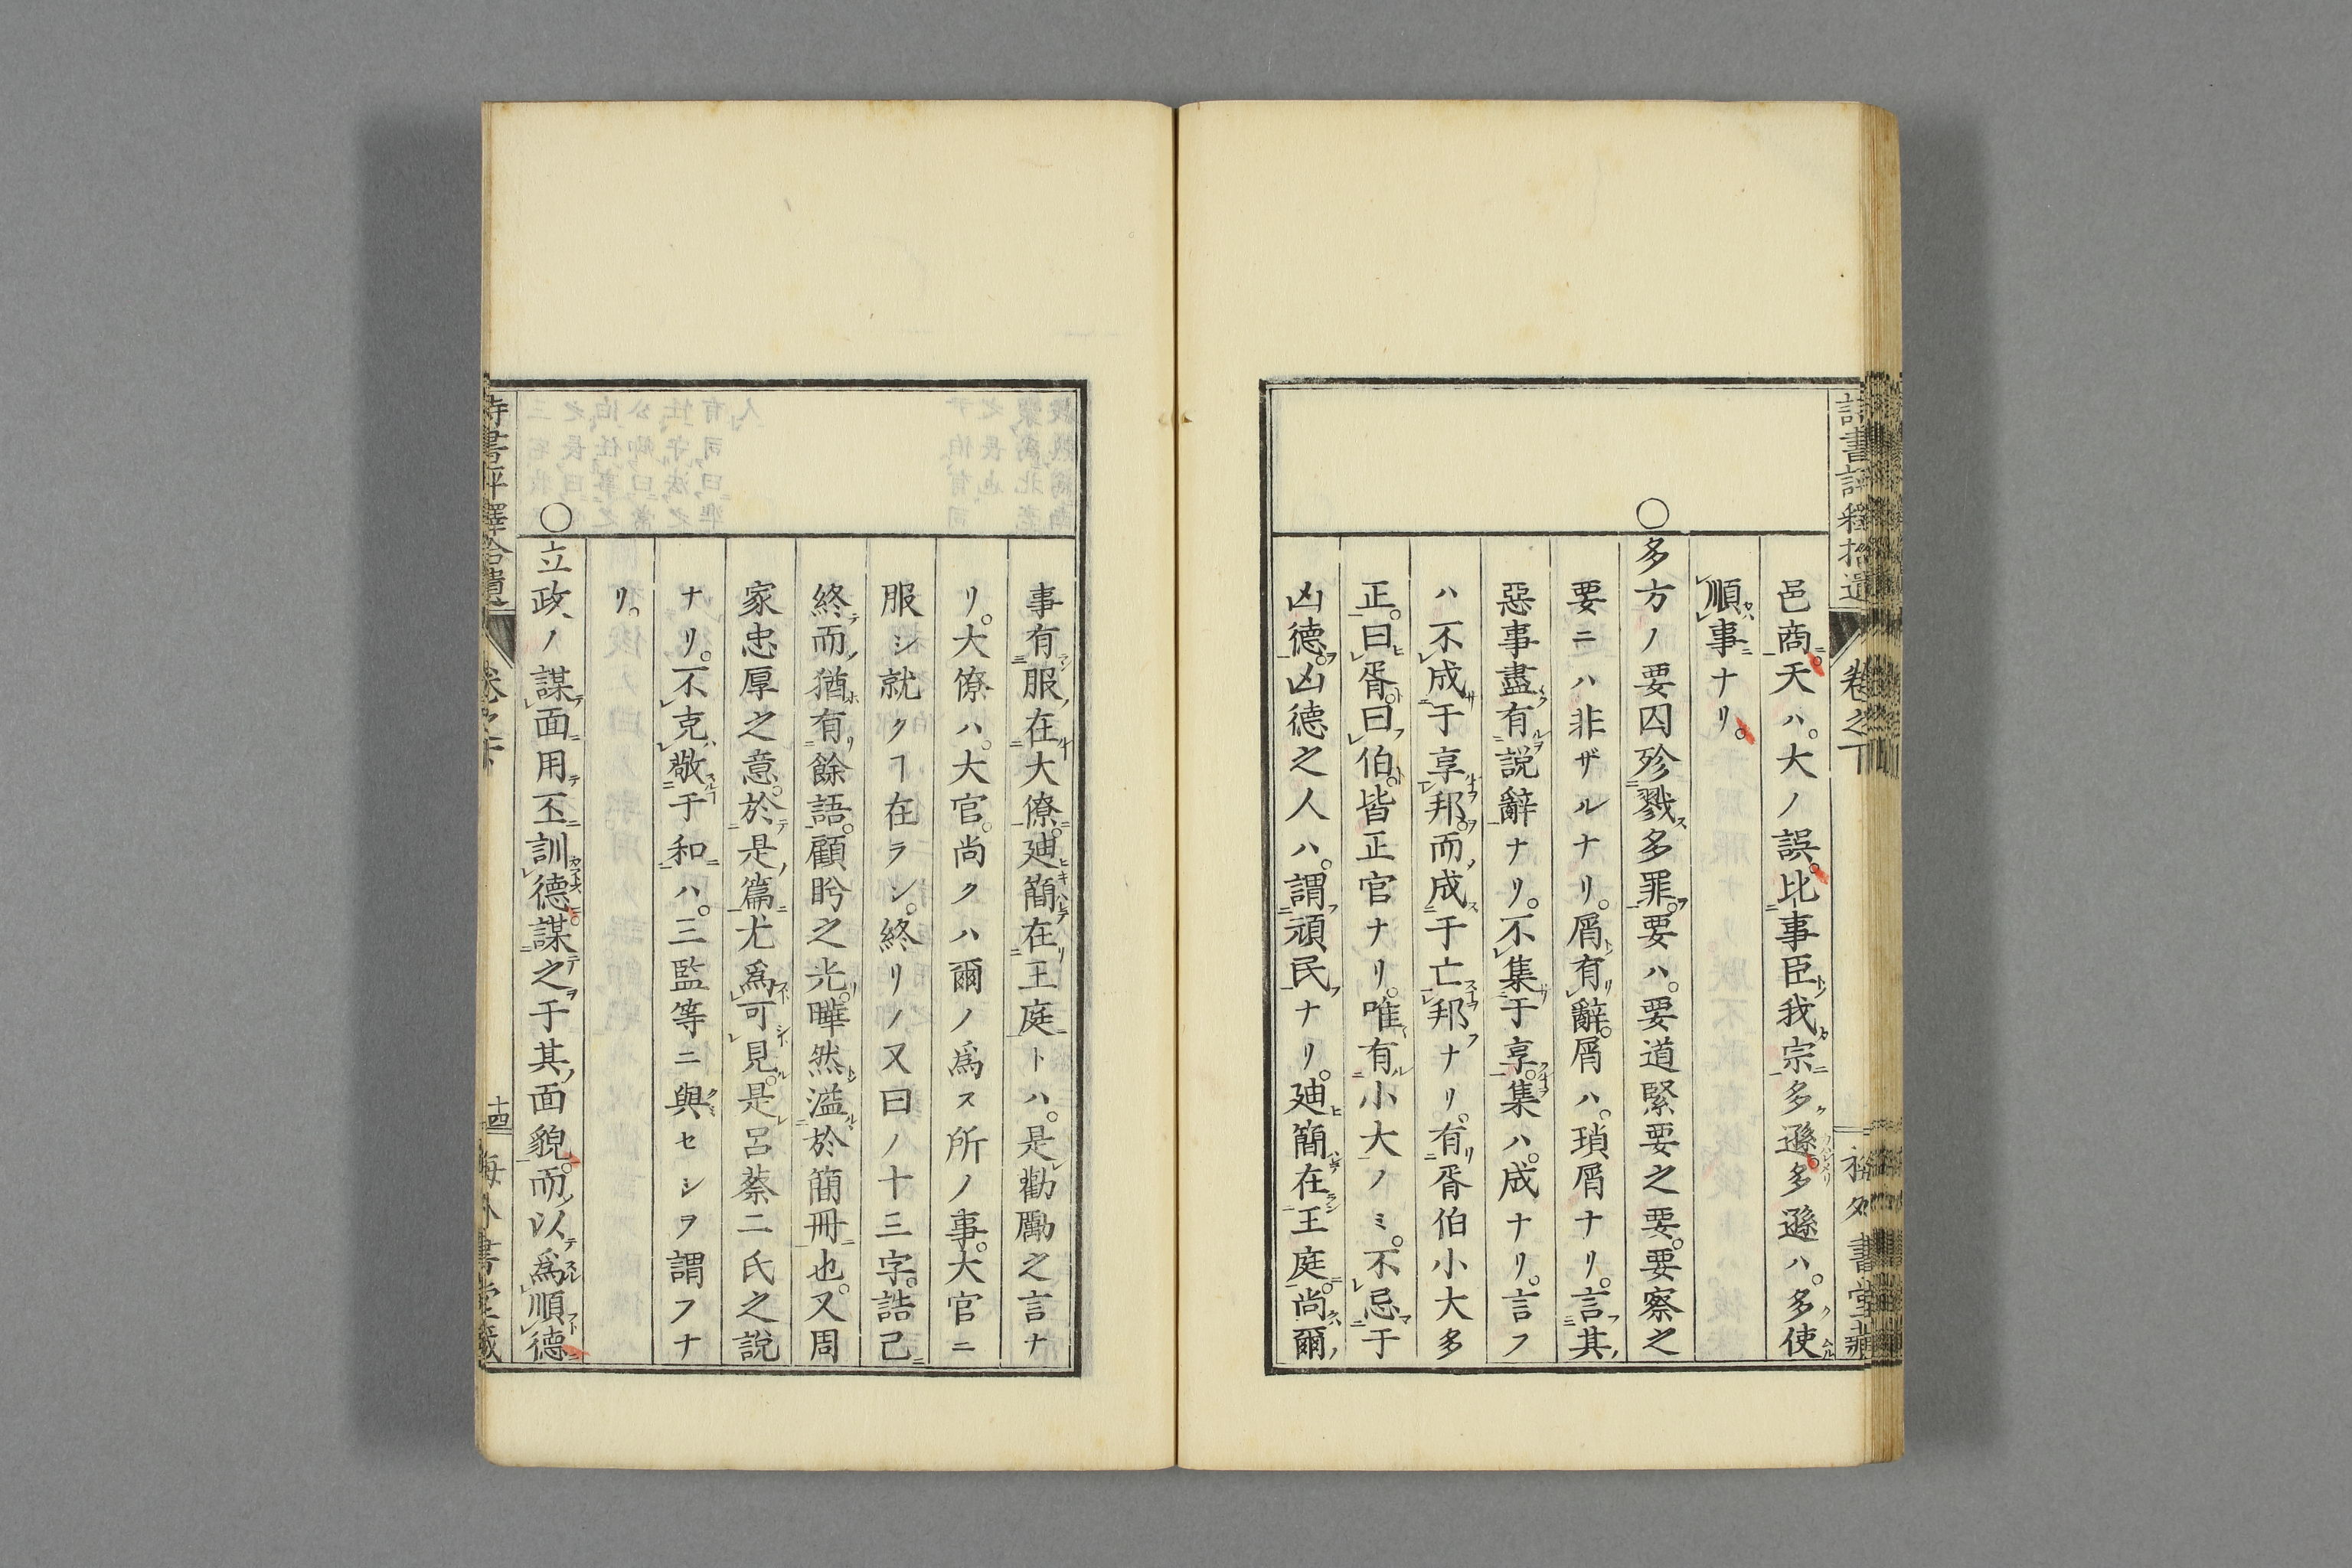 邑商。天ハ。大ノ誤。比事臣我宗多遜。多遜ハ。多使
順事ナリ。
○多方ノ要囚殄戮多罪。要ハ。要道緊要之要。要察之
要ニハ非ザルナリ。屑有辭。屑ハ。瑣屑ナリ。言其
惡事盡有說辭ナリ。不集于享。集ハ。成ナリ。言フ
ハ不成于享邦。而成于亡邦ナリ。有胥伯小大多
正。曰胥。曰伯。皆正官ナリ。唯有小大ノミ。不忌于
凶德。凶德之人ハ。謂頑民ナリ。迪簡在王庭。尚爾
事有服在大僚。迪簡在王庭トハ。是勸勵之言ナ
リ。大僚ハ。大官。尚クハ爾ノ爲ス所ノ事。大官ニ
服シ就クヿ在ラシ。終リノ又曰ノ十三字。誥已
終而猶有餘語。顧盻之光。曄然溢於簡冊也。又周
家忠厚之意。於是篇尤爲可見。是呂蔡二氏之說
ナリ。不克敬于和ハ。三監等ニ與セシヲ謂フナ
リ。
○立政ノ謀面用丕訓德。謀之于其面貌。而以爲順德
卷之下
十四